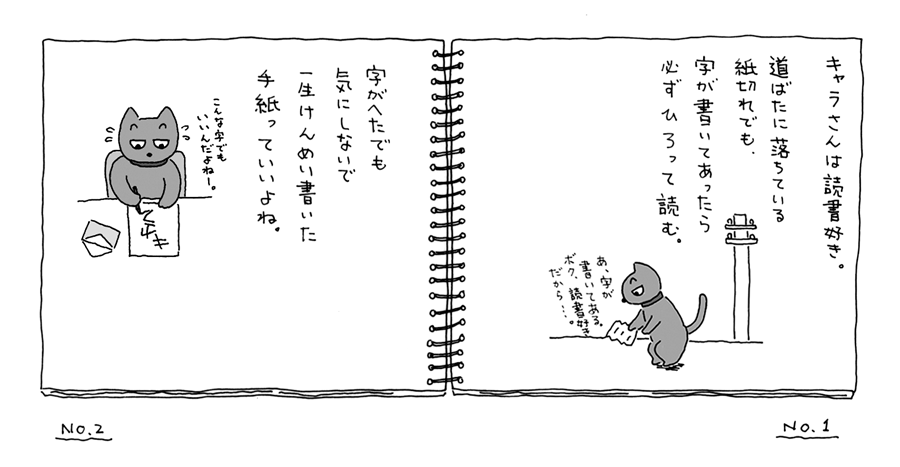 キャラさんは読書好き。
道ばたに落ちている
紙切れでも、
字が書いてあったら
必ずひろって読む。
あ、字が
書いてある。
ボク、読書好き
だから…。
NO.1
字がへたでも
気にしないで
一生けんめい書いた
手紙っていいよね。
こんな字でも
いいんだよねー。
NO.2